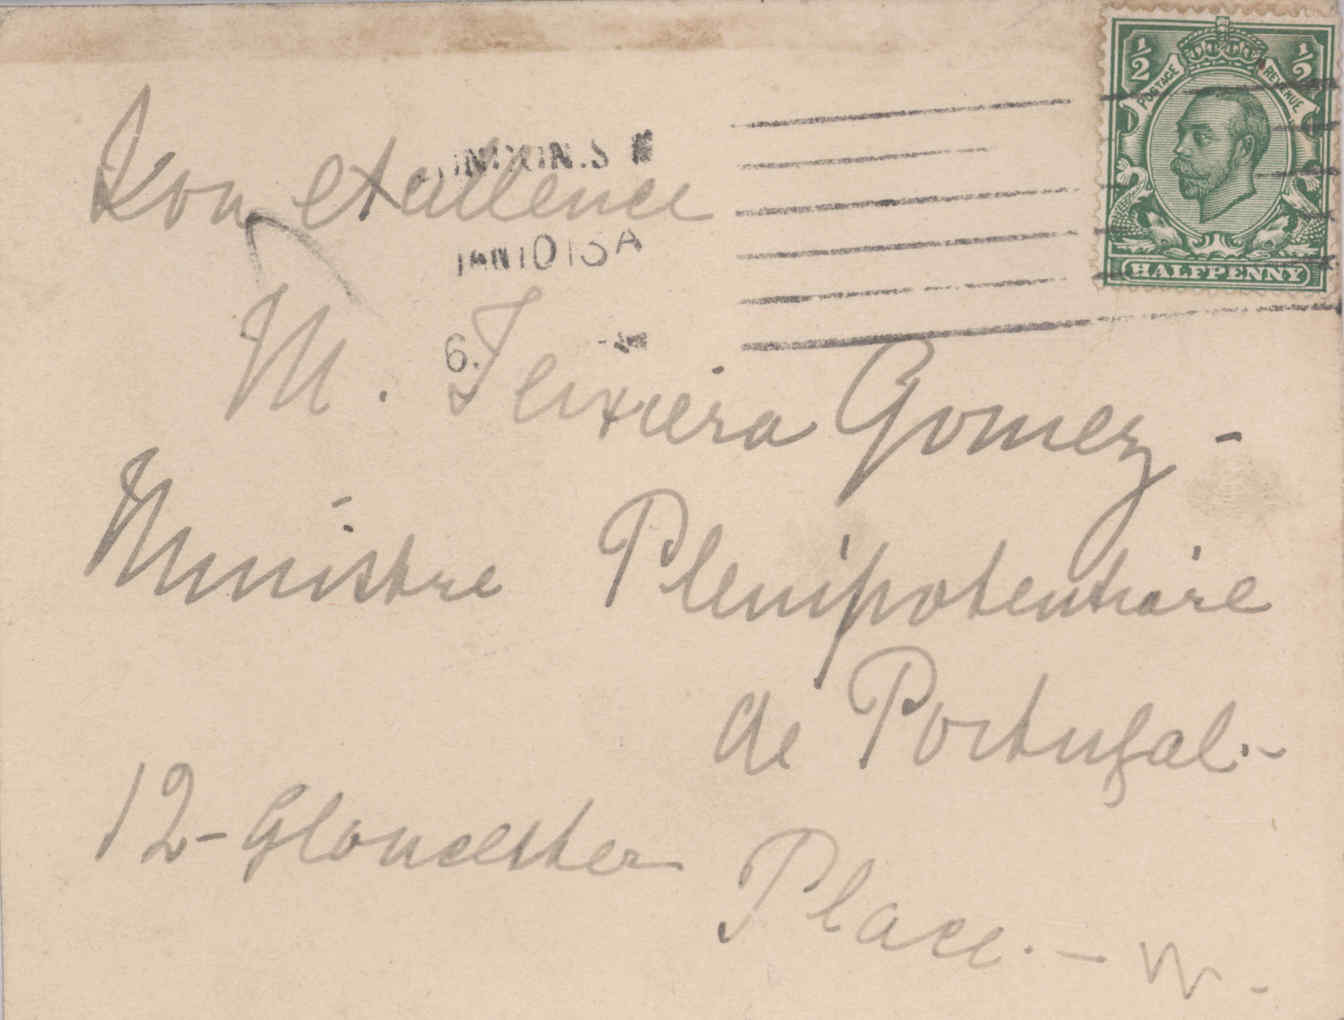 ½ ½
POSTAGE REVENUE
HALFPENNY
LONDON.S
JAN 10 13 A
6.
Son excellence
M. Teixiera Gomez -
Ministre Plenipotentiaire
de Portugal.-
12 - Gloucester
Place. - W -